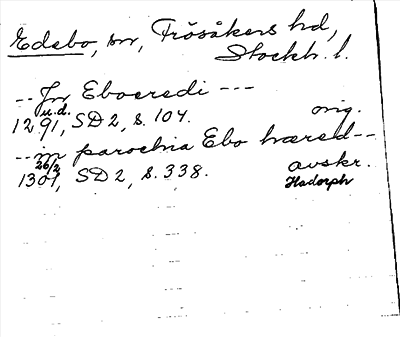 Edebo, sn, Frösåkers hd,
Stockh. l.
-- Jn Eboeredi ---
u.d.
1291, SD 2, s. 104. orig.
-- in parochia Ebo hæred --
26/2 avskr.
1301, SD 2, s. 338. Hadorph